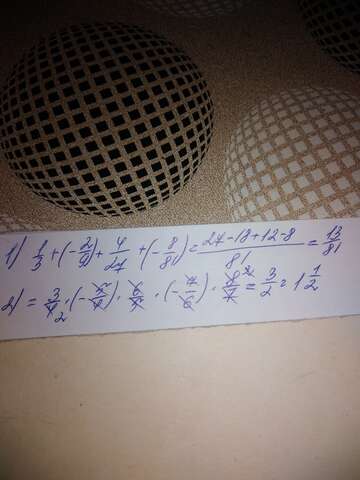 1) 1/3 + (- 2/9) + 4/27 + (- 8/81) = 27 - 18 + 12 - 8 / 81 = 13/81
2) = 3/4 · (- ) · · (- ) · = 3/2 = 1 1/2